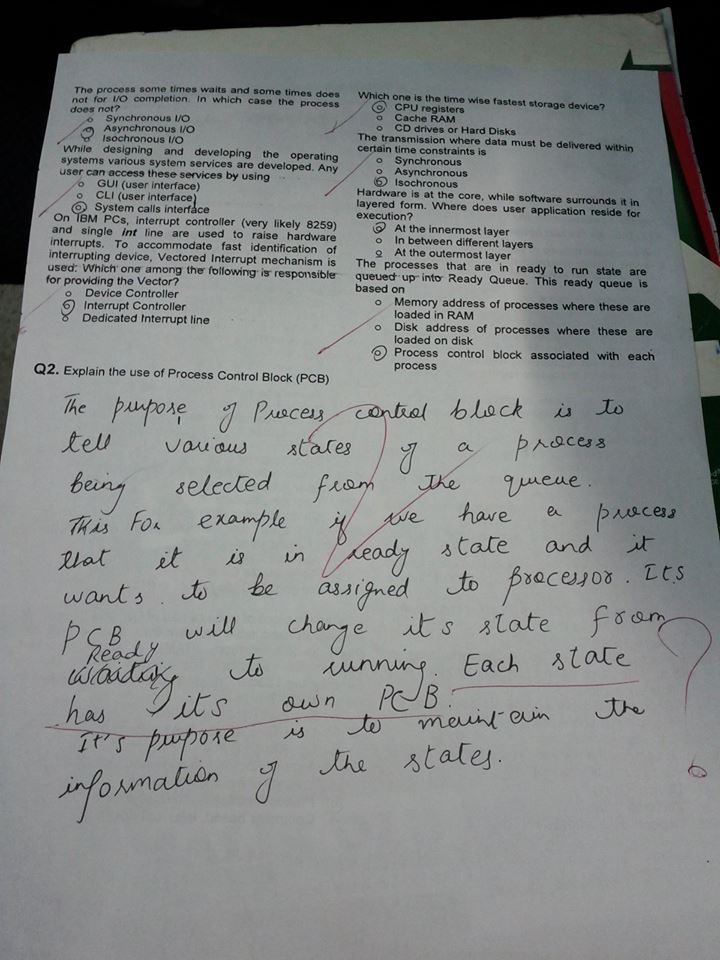 The process some times waits and some times does
not for I/O completion. In which case the process
does not?
Synchronous I/O
Asynchronous I/O
Isochronous I/O
While designing and developing the operating
systems various system services are developed. Any
user can access these services by using
GUI (user interface)
CLI (user interface)
System calls interface
On IBM PCs, interrupt controller (very likely 8259)
and single int line are used to raise hardware
interrupts. To accommodate fast identification of
interrupting device, Vectored Interrupt mechanism is
used. Which one among the following is responsible
for providing the Vector?
Device Controller
Interrupt Controller
Dedicated Interrupt line
Which one is the time wise fastest storage device?
CPU registers
Cache RAM
CD drives or Hard Disks
The transmission where data must be delivered within
certain time constraints is
Synchronous
Asynchronous
Isochronous
Hardware is at the core, while software surrounds it in
layered form. Where does user application reside for
execution?
At the innermost layer
In between different layers
At the outermost layer
The processes that are in ready to run state are
queued up into Ready Queue. This ready queue is
based on
Memory address of processes where these are
loaded in RAM
Disk address of processes where these are
loaded on disk
Process control block associated with each
process
Q2. Explain the use of Process Control Block (PCB)
The purpose of Process control block is to
tell various states of a process
being selected from the queue.
This For example if we have a process
that it is in ready state and it
wants to be assigned to processor. Its
PCB will change it's state from
Ready
waiting to running. Each state
has it's own PCB.
It's purpose is to maintain the
information of the states.